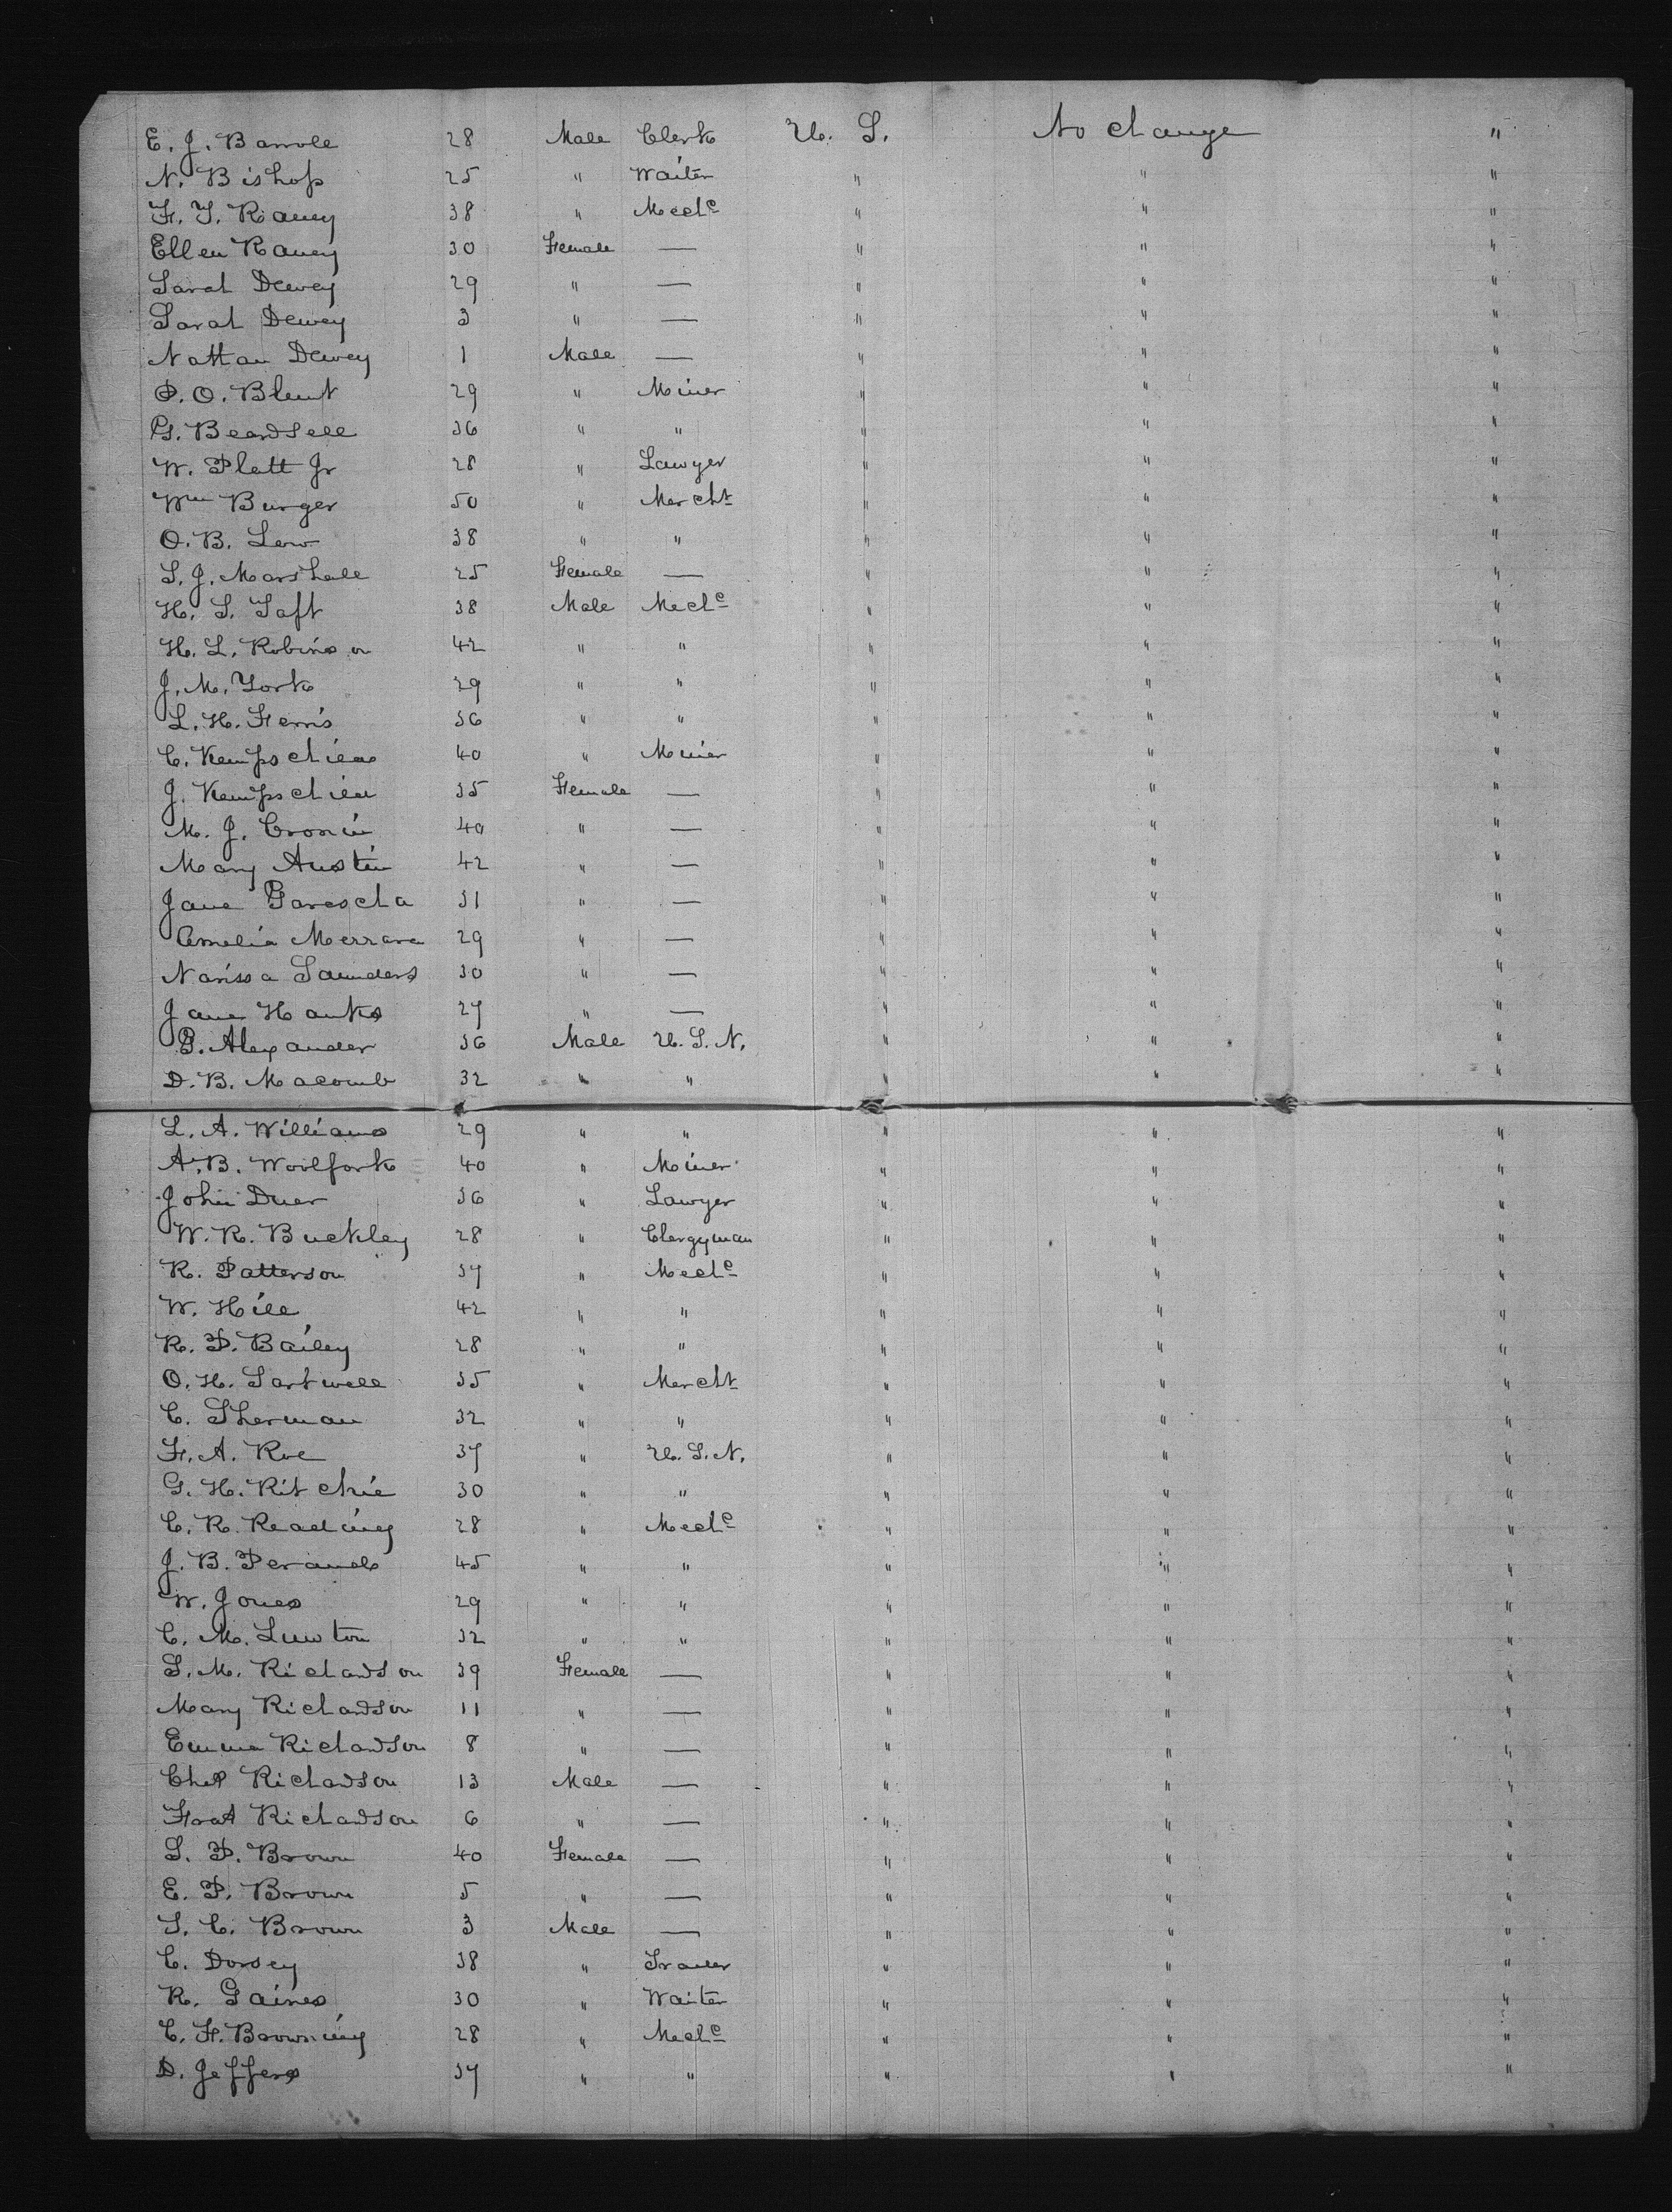 E. J. Barrole 28 Male Clerk U. S. No change "
N. Bishop 25 " Waiter " " "
F. T. Raney 38 " Mechc " " "
Ellen Raney 30 Female — " " "
Sarah Dewey 29 " — " " "
Sarah Dewey 3 " — " " "
Nattan Dewey 1 Male — " " "
P. O. Blunt 29 " Miner " " "
G. Beardsell 36 " " " " "
W. Platt Jr 28 " Lawyer " " "
Wm Burger 50 " Mercht " " "
O. B. Low 38 " " " " "
S. J. Marshall 25 Female — " " "
H. S. Taft 38 Male Mechc " " "
H. L. Robinson 42 " " " " "
J. M. York 29 " " " " "
L. H. Ferris 36 " " " " "
C. 40 " Miner " " "
J. 35 Female — " " "
M. J. Cronin 40 " — " " "
Mary Austin 42 " — " " "
Jane Garescha 31 " — " " "
Amelia 29 " — " " "
Narissa Saunders 30 " — " " "
Jane Hanks 27 " — " " "
P. Alexander 36 Male U. S. N. " " "
D. B. Macomb 32 " " " " "
L. A. Williams 29 " " " " "
A. B. Woolfork 40 " Miner " " "
John Duer 36 " Lawyer " " "
W. R. Buckley 28 " Clergyman " " "
R. Patterson 37 " Mechc " " "
W. Hill 42 " " " " "
R. P. Bailey 28 " " " " "
O. H. Sartwell 35 " Mercht " " "
C. Sherman 32 " " " " "
F. A. Roe 37 " U. S. N. " " "
G. H. Ritchie 30 " " " " "
C. R. Reading 28 " Mechc " " "
J. B. 45 " " " " "
W. Jones 29 " " " " "
C. M. 32 " " " " "
S. M. Richardson 39 Female — " " "
Mary Richardson 11 " — " " "
Emma Richardson 8 " — " " "
Chas Richardson 13 Male — " " "
Richardson 6 " — " " "
S. P. Brown 40 Female — " " "
E. P. Brown 5 " — " " "
S. C. Brown 3 Male — " " "
C. Dorsey 38 " Trader " " "
R. Gaines 30 " Waiter " " "
C. F. Browning 28 " Mechc " " "
D. Jeffers 37 " " " " "